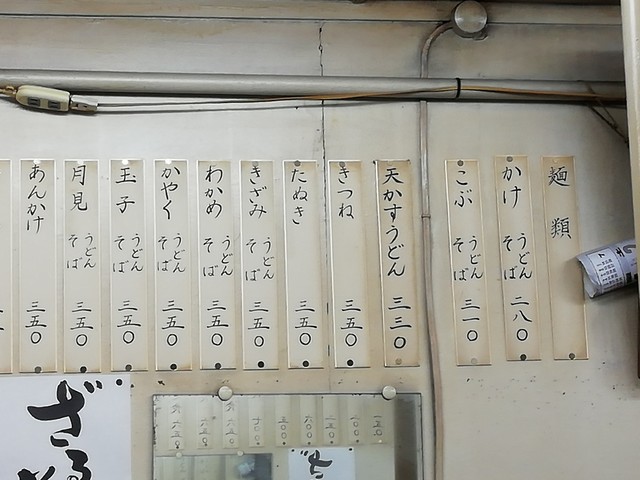 麺類
かけ うどん そば 二八〇
こぶ うどん そば 三一〇
天かすうどん 三三〇
きつね 三五〇
たぬき 三五〇
きざみ うどん そば 三五〇
わかめ うどん そば 三五〇
かやく うどん そば 三五〇
玉子 うどん そば 三五〇
月見 うどん そば 三五〇
あんかけ 三五〇
ざる